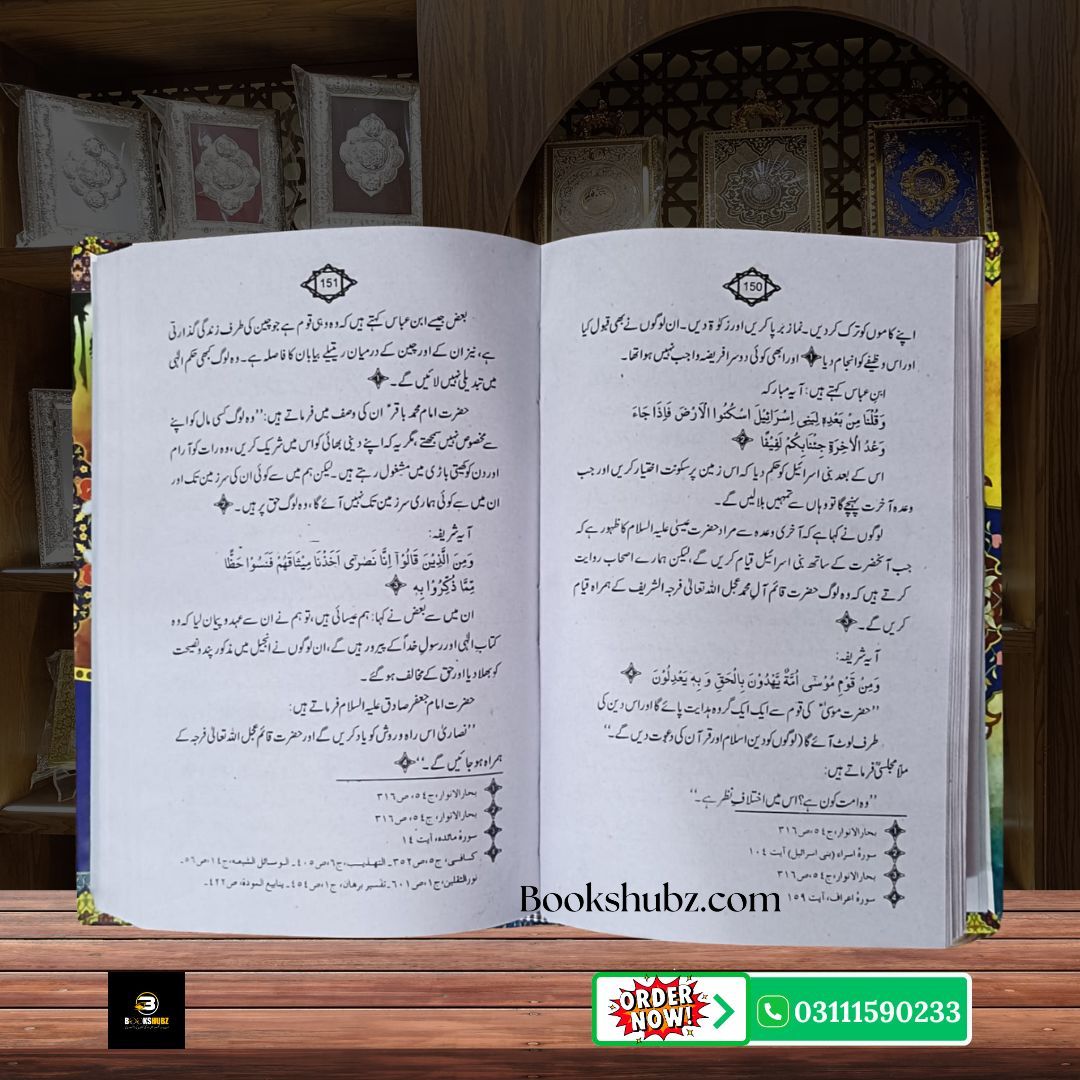 150
اپنے کاموں کو ترک کر دیں۔ نماز برپا کریں اور زکوٰۃ دیں۔ ان لوگوں نے بھی قبول کیا
اور اس وظیفے کو انجام دیا 1 اور ابھی کوئی دوسرا فریضہ واجب نہیں ہوا تھا۔
ابن عباس کہتے ہیں: آیہ مبارکہ
وَقُلْنَا مِنْ بَعْدِهٖ لِبَنِي اِسْرَآئِيْلَ اسْكُنُوا الْاَرْضَ فَاِذَا جَآءَ
وَعْدُ الْاٰخِرَةِ جِئْنَابِكُمْ لَفِيْفًا 2
اس کے بعد بنی اسرائیل کو حکم دیا کہ اس زمین پر سکونت اختیار کریں اور جب
وعدہ آخرت پہنچے گا تو وہاں سے تمہیں بلا لیں گے۔
لوگوں نے کہا ہے کہ آخری وعدہ سے مراد حضرت عیسیٰ علیہ السلام کا ظہور ہے کہ
جب آنحضرت کے ساتھ بنی اسرائیل قیام کریں گے، لیکن ہمارے اصحاب روایت
کرتے ہیں کہ وہ لوگ حضرت قائم آل محمد عجل اللہ تعالیٰ فرجہ الشریف کے ہمراہ قیام
کریں گے۔ 3
آیہ شریفہ:
وَمِنْ قَوْمِ مُوْسٰٓى اُمَّةٌ يَّهْدُوْنَ بِالْحَقِّ وَ بِهٖ يَعْدِلُوْنَ 4
”حضرت موسیٰؑ کی قوم سے ایک ایک گروہ ہدایت پائے گا اور اس دین کی
طرف لوٹ آئے گا (لوگوں کو دین اسلام اور قرآن کی دعوت دیں گے۔“
ملّا مجلسیؒ فرماتے ہیں:
”وہ امت کون ہے؟ اس میں اختلاف نظر ہے۔“
1 بحارالانوار، ج٥٤، ص٣١٦
2 سورۂ اسراء (بنی اسرائیل) آیت ١٠٤
3 بحارالانوار، ج٥٤، ص٣١٦
4 سورۂ اعراف، آیت ١٥٩
151
بعض جیسے ابن عباس کہتے ہیں کہ وہ وہی قوم ہے جو چین کی طرف زندگی گذارتی
ہے، نیز ان کے اور چین کے درمیان ریتیلے بیابان کا فاصلہ ہے۔ وہ لوگ کبھی حکم الٰہی
میں تبدیلی نہیں لائیں گے۔ 1
حضرت امام محمد باقرؑ ان کی وصف میں فرماتے ہیں: ”وہ لوگ کسی مال کو اپنے
سے مخصوص نہیں سمجھتے، مگر یہ کہ اپنے دینی بھائی کو اس میں شریک کریں، وہ رات کو آرام
اور دن کو کھیتی باڑی میں مشغول رہتے ہیں۔ لیکن ہم میں سے کوئی ان کی سرزمین تک اور
ان میں سے کوئی ہماری سرزمین تک نہیں آئے گا، وہ لوگ حق پر ہیں۔ 2
آیہ شریفہ:
وَمِنَ الَّذِيْنَ قَالُوْٓا اِنَّا نَصٰرٰٓى اَخَذْنَا مِيْثَاقَهُمْ فَنَسُوْا حَظًّا
مِّمَّا ذُكِّرُوْا بِهٖ 3
ان میں سے بعض نے کہا: ہم عیسائی ہیں، تو ہم نے ان سے عہد و پیمان لیا کہ وہ
کتاب الٰہی اور رسول خداؐ کے پیرو رہیں گے، ان لوگوں نے انجیل میں مذکور پند و نصیحت
کو بھلا دیا اور حق کے مخالف ہو گئے۔
حضرت امام جعفر صادق علیہ السلام فرماتے ہیں:
”نصاریٰ اس راہ و روش کو یاد کریں گے اور حضرت قائم عجل اللہ تعالیٰ فرجہ کے
ہمراہ ہو جائیں گے۔“ 4
1 بحارالانوار، ج٥٤، ص٣١٦
2 بحارالانوار، ج٥٤، ص٣١٦
3 سورۂ مائدہ، آیت ١٤
4 کافی، ج٥، ص٣٥٢۔ التهذیب، ج٦، ص٤٠٥۔ الوسائل الشیعه، ج١٤، ص٥٦۔
نورالثقلین، ج١، ص٦٠١۔ تفسیر برهان، ج١، ص٤٥٤۔ ینابیع المودة، ص٤٢٢۔
Bookshubz.com
BOOKSHUBZ
ORDER
NOW!
03111590233